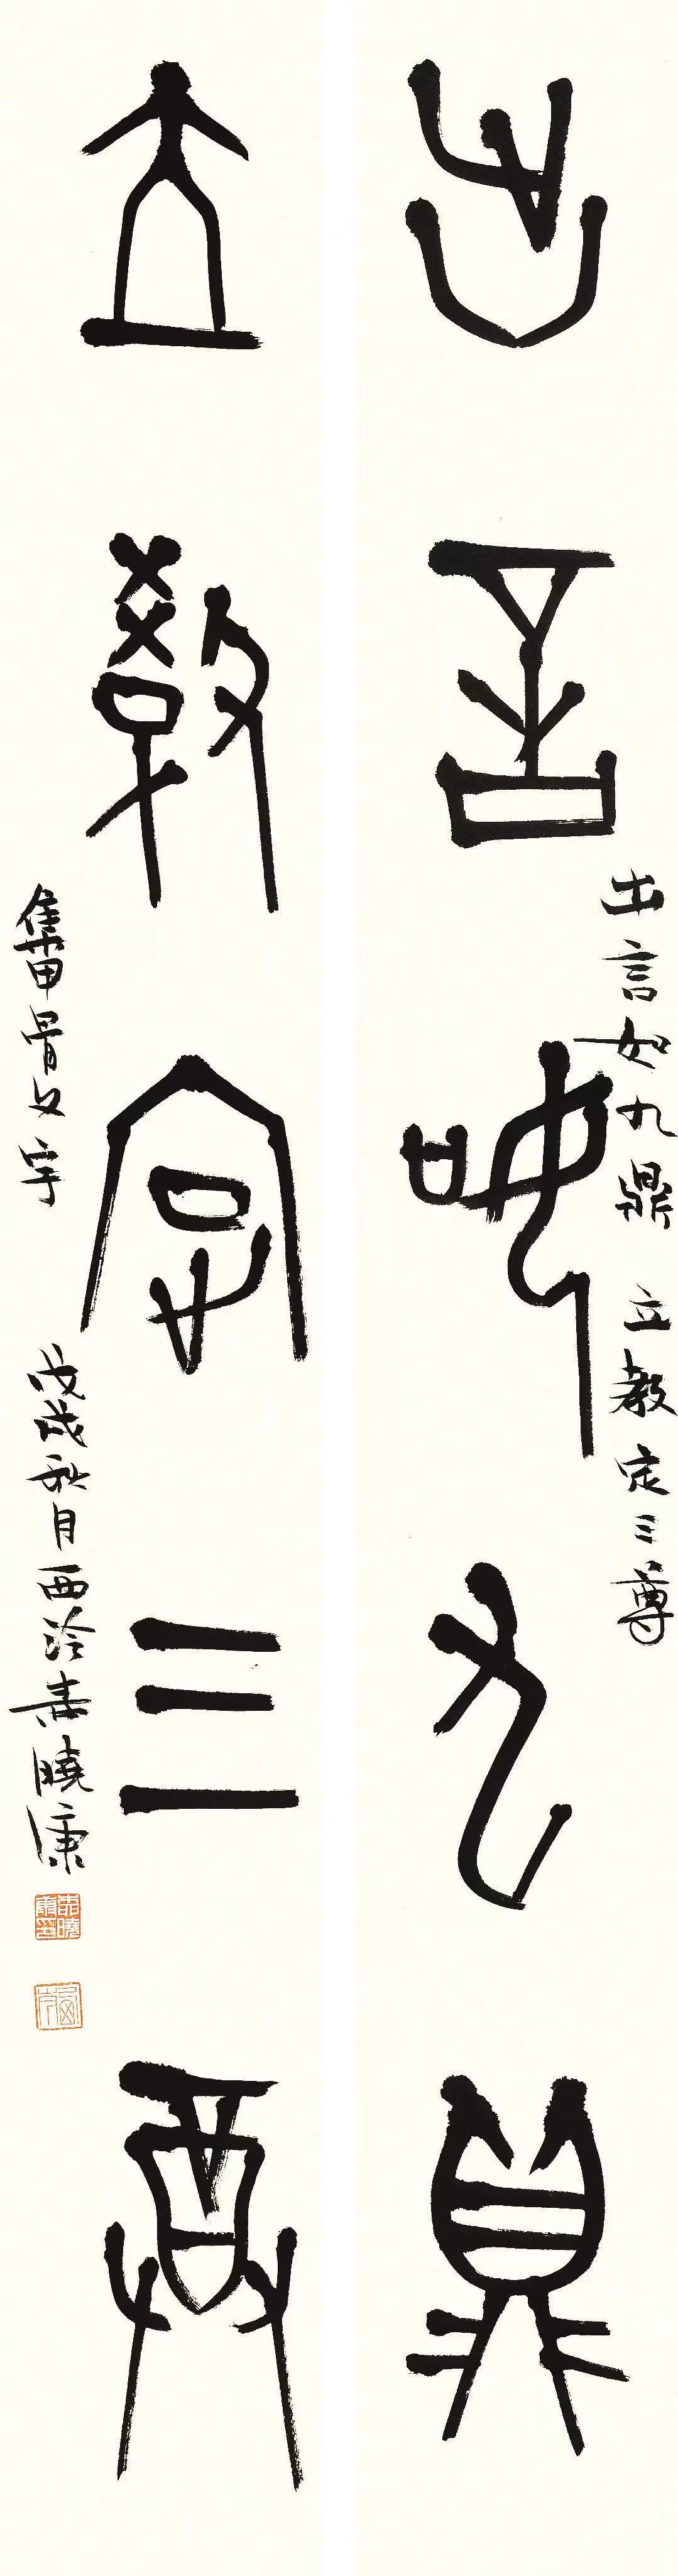 出言如九鼎
出言如九鼎 立教定三尊
立教定三尊
集甲骨文字 戊戌秋月西泠袁曉康